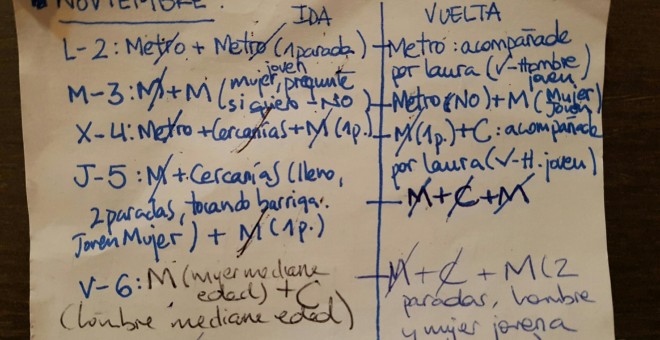 NOVIEMBRE:
IDA
VUELTA
L-2: Metro + Metro (1parada)
M-3: M + M (mujer, joven pregunte
si quiero - NO)
X-4: Metro + Cercanías + M (1p.)
J-5: M + Cercanías (lleno,
2 paradas, tocando barriga.
Joven Mujer) + M (1p.)
V-6: M (mujer mediane
edad) + C
(hombre mediane edad)
Metro: acompañade
por laura (V-Hombre
joven)
Metro (NO) + M (Mujer
Joven)
M (1p.) + C: acompañade
por laura (V-H. joven)
M + C + M
M + C + M (2
paradas, hombre
y mujer jovena